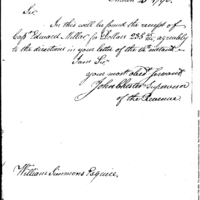 Sir
In this will be found the receipt of
Capt. Edward Miller for Dollars 235 agreeably
to the directions in your letter of the 14th instant.
I am Sir
your most obed. Servant
John Chester Supervisor
of the Revenue
William Simmons Esquire.